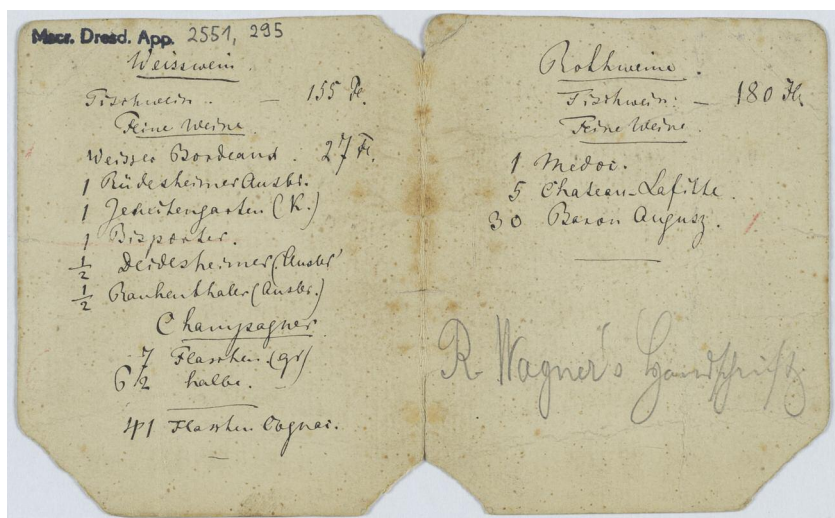 Mscr. Dresd. App. 2551, 295
Weisswein
Tischwein .. — 155 Fl.
Feine Weine
Weisser Bordeaux. 27 Fl.
1 Rüdesheimer Ausbr.
1 Jesuitengarten (K.)
1 Pisporter.
1/2 Deidesheimer (Ausbr)
1/2 Rauhenthaler (Ausbr.)
Champagner
7 Flaschen. (gr)
6 1/2 halbe.
41 Flaschen Cognac.
Rothweine.
Tischwein: — 180 Fl.
Feine Weine.
1 Medoc.
5 Chateau-Lafitte.
30 Baron Augusz.
R. Wagner's Handschrift